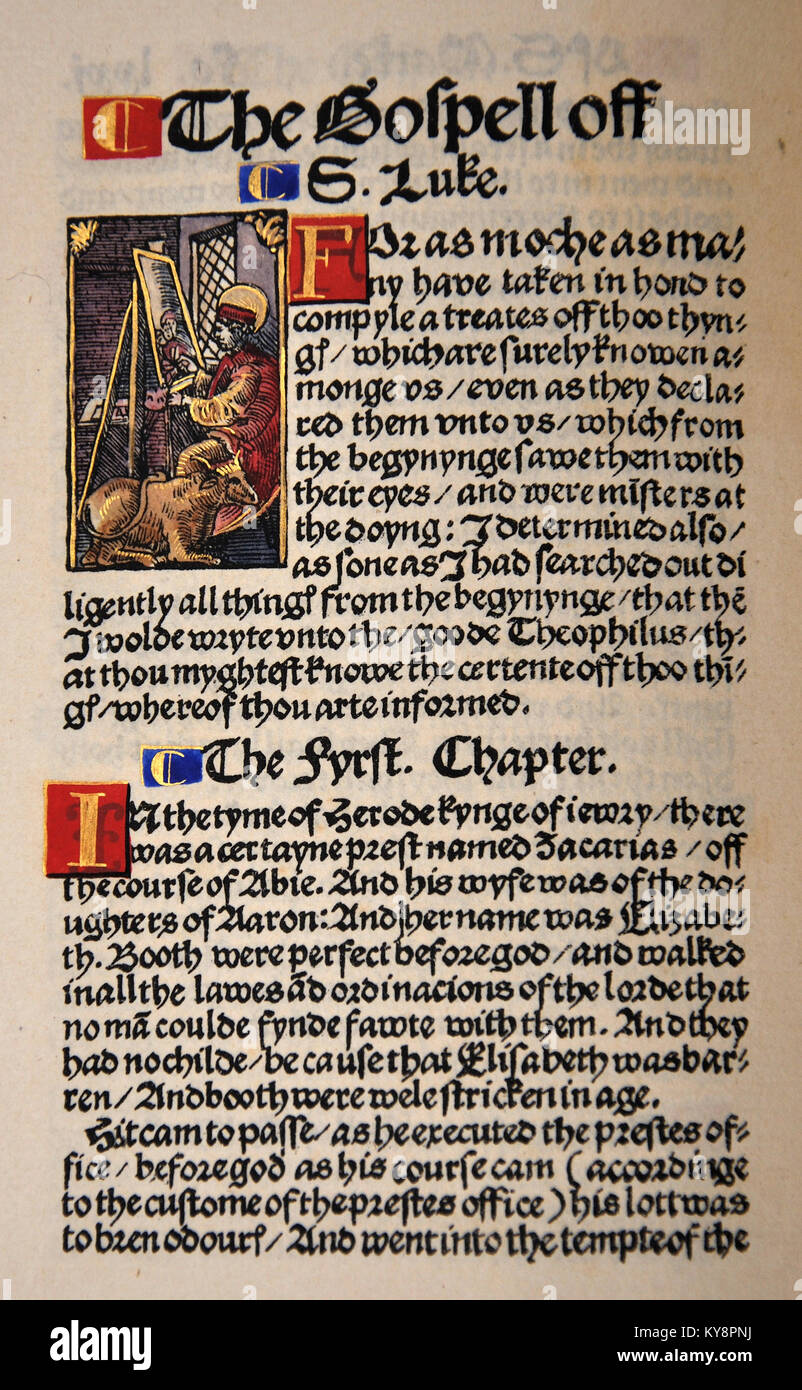 C The Goſpell off
C S. Luke.
FOr as moche as ma⸗
ny have taken in hond to
compyle a treates off thoo thyn⸗
gſ/ which are ſurely knowen a⸗
monge vs/ even as they decla⸗
red them vnto vs/ which from
the begynynge ſawe them with
their eyes/ and were miſters at
the doyng: I determined alſo/
as ſone as I had ſearched out di
ligently all thingſ from the begynynge/ that thẽ
I wolde wryte vnto the/ goode Theophilus/ th⸗
at thou myghteſt knowe the certente off thoo thĩ⸗
gſ/ whereof thou arte informed.
C The Fyrſt. Chapter.
IN the tyme of Herode kynge of iewry/ there
was a certayne preſt named Zacarias/ off
the courſe of Abie. And his wyfe was of the do⸗
ughters of Aaron: And her name was Elizabe⸗
th. Booth were perfect before god/ and walked
in all the lawes ãd ordinacions of the lorde that
no mã coulde fynde fawte with them. And they
had no childe/ be cauſe that Eliſabeth was bar⸗
ren/ And booth were wele ſtricken in age.
Hit cam to paſſe/ as he executed the preſtes of⸗
fice/ before god as his courſe cam (accordinge
to the cuſtome of the preſtes office) his lott was
to bren odourſ/ And went into the tempte of the
alamy
Image ID: KY8PNJ
www.alamy.com